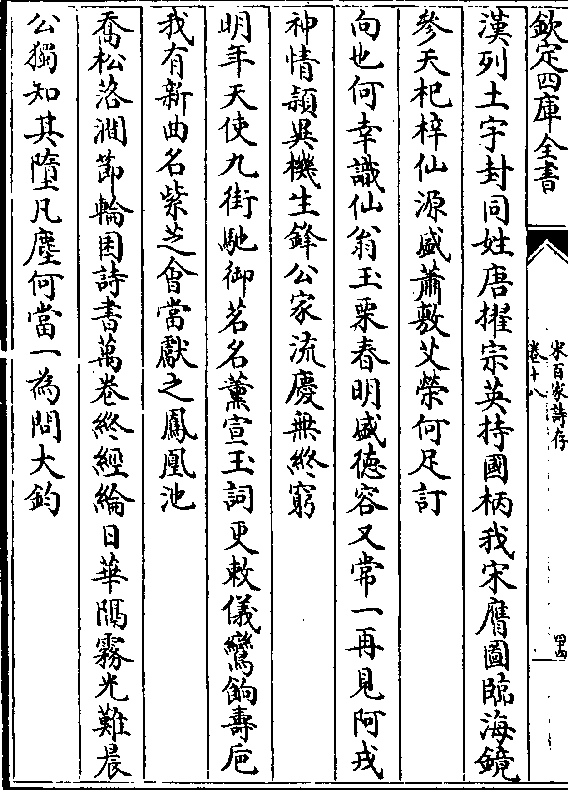 欽定四庫全書
宋百家詩存
卷十八
四
漢列土宇封同姓唐擢宗英持國柄我宋膺圖臨海鏡
參天杞梓仙源盛蕭敷艾榮何足訂
向也何幸識仙翁玉栗春明盛德容又常一再見阿戎
神情頴異機生鋒公家流慶無終窮
明年天使九街馳御茗名薰宣玉詞更敕儀鸞餉壽巵
我有新曲名紫芝會當獻之鳳凰池
喬松落澗節輪囷詩書萬卷終經綸日華隔霧光難晨
公獨知其墮凡塵何當一為問大鈞